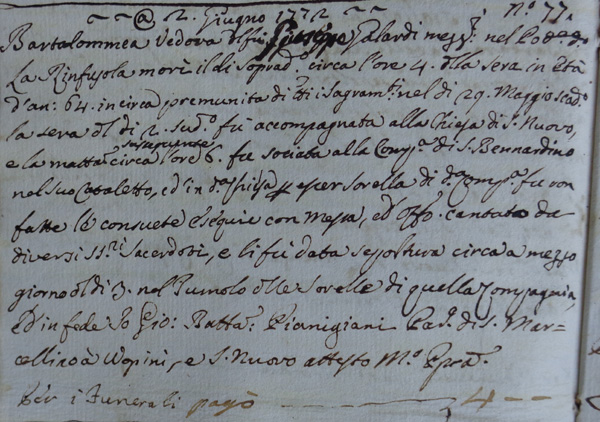 @ 2. Giugno 1772 N.° 77.
Bartalommea Vedova del fu Giuseppe Galardi mezz.ª nel Pod.e d.º
La Rinfusola morì il dì soprad.º circa l'ore 4. della sera in età
d'an: 64. in circa premunita di tti i Sagram.ti nel dì 29. Maggio scad.º
la sera del dì 2. sud.º fù accompagnata alla Chiesa di S. Nuovo,
e la matt.ª susseguente circa l'ore 6. fu sociata alla Comp.ª di S. Bernardino
nel suo Cataletto, ed in d.ª Chiesa p esser Sorella di d.ª Comp.ª fu ron
fatte le consuete esequie con Messa, ed Offo. cantato da
diversi SS.ri Sacerdoti, e li fù data sepoltura circa a mezzo
giorno del dì 3. nel Tumolo delle Sorelle di quella Compagnia,
Ed in fede Io Gio: Batta. Pianigiani Pad. di S. Mar=
cellino à Wopini, e S. Nuovo attesto M.º Ppria.
Per i Funerali pagò 4